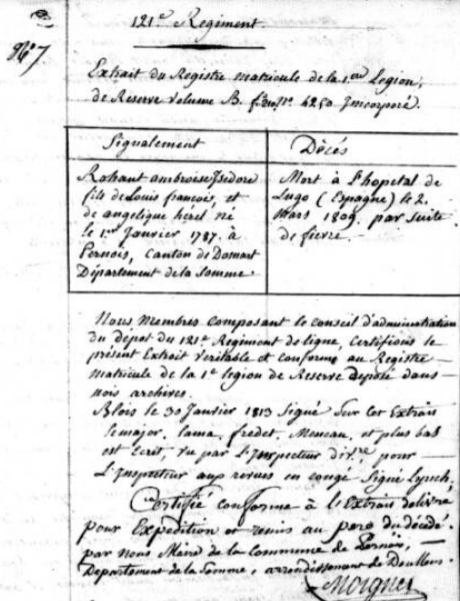 N° 7
121e Régiment.
Extrait du Registre matricule de la 1ere Légion,
de Réserve volume B. f° N° 4250 Incorporé.
Signalement
Rohaut ambroise Isidore
fils de Louis françois, et
de angelique hérel né
le 1er Janvier 1787. à
Pernois, Canton de Domart
Département de la Somme.
Décés
Mort à l'hopetal de
Lugo (Espagne) le 2.
Mars 1809. par suite
de fievre.
Nous Membres composant le conseil d'administration
du dépot du 121e Régiment de ligne, Certifions le
présent Extrait veritable et conforme au Registre
matricule de la 1e legion de Reserve déposé dans
nois archives.
Blois le 30 Janvier 1813 Signé Sur cet Extrait
le major, Lama, fredet, Meneau, et plus bas
est écrit, vu par l'Inspecteur pour
L'Inspecteur aux revues en congé Signé Lynch;
Certifié conforme à l'Extrait délivré
pour Expédition et remis au pere du décédé.
par nous Maire de la Commune de Pernois,
Département de la Somme, arrondissement de Doullens.